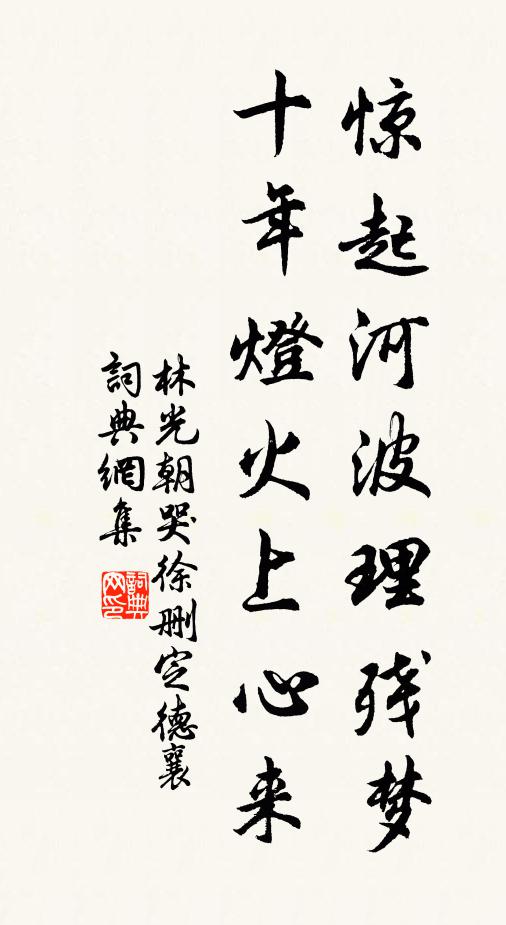 惊起河波理残梦
十年燈火上心来
林光朝哭徐删定德襄
詞典網集
詞典
网印